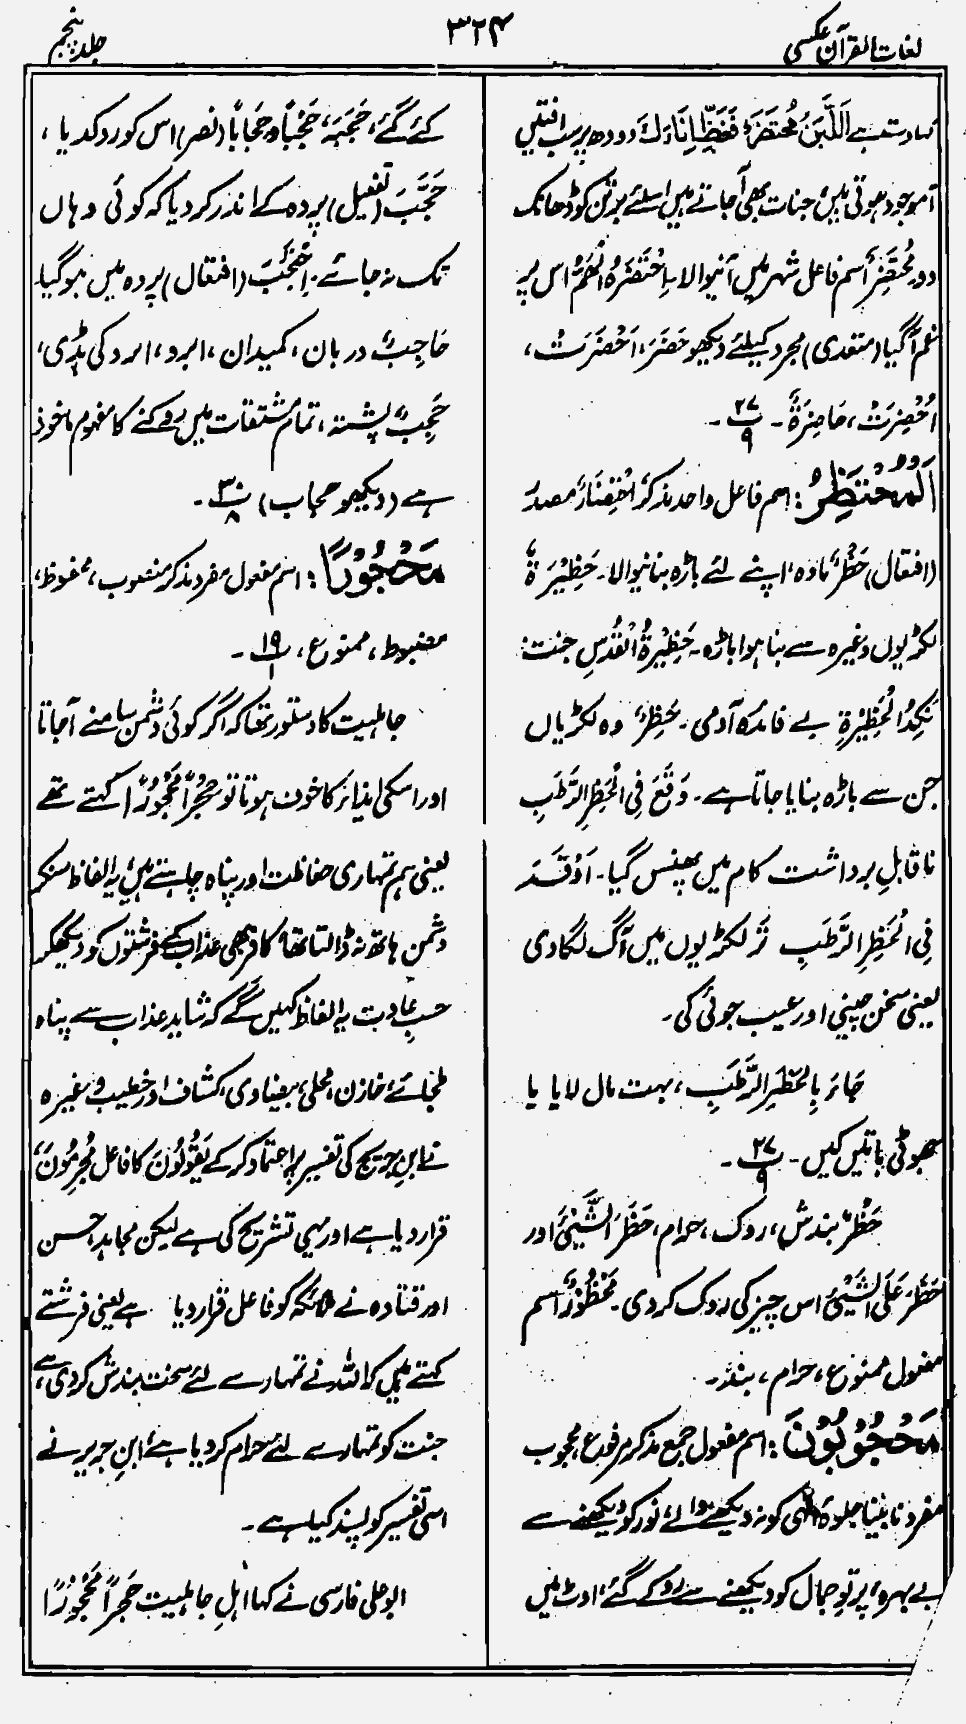 لغات القرآن عکسی
۳۲۴
جلد پنجم
کہاوت ہے اَللَّبَنُ مُحْتَضَرٌ فَغَطِّ اِنَاءَكَ دودھ پر سب آفتیں
آموجود ہوتی ہیں جنات بھی آ جاتے ہیں اسلئے برتن کو ڈھانک
دو۔ مُحْتَضِرٌ اسم فاعل شہر میں آنیوالا۔ اِحْتَضَرَهُ الْهَمُّ اس پر
غم آگیا (متعدی) مجرد کیلئے دیکھو حَضَرَ، اَحْضَرَتْ،
اُحْضِرَتْ، حَاضِرَةً ۔ ۲۷/۹ ۔
اَلْمُحْتَظِرُ : اسم فاعل واحد مذکر اِحْتِظَارٌ مصدر
(افتعال) حَظْرٌ مادہ، اپنے لئے باڑہ بنانیوالا۔ حَظِیْرَةٌ
لکڑیوں وغیرہ سے بنا ہوا باڑہ۔ حَظِیْرَةُ الْقُدْسِ جنت
نَكِدُ الْحَظِیْرَةِ بے فائدہ آدمی۔ حَظِرٌ وہ لکڑیاں
جن سے باڑہ بنایا جاتا ہے۔ وَقَعَ فِی الْحَظِرِ الرَّطْبِ
ناقابلِ برداشت کام میں پھنس گیا۔ اَوْقَدَ
فِی الْحَظِرِ الرَّطْبِ تر لکڑیوں میں آگ لگا دی
یعنی سخن چینی اور عیب جوئی کی۔
جَاءَ بِالْحَظِرِ الرَّطْبِ، بہت مال لایا یا
جھوٹی باتیں کیں۔ ۲۷/۹ ۔
حَظْرٌ بندش، روک، حرام، حَظَرَ الشَّیْئَ اور
حَظَرَ عَلَی الشَّیْئِ اس چیز کی روک کردی۔ مَحْظُوْرٌ اسم
مفعول ممنوع، حرام، بند۔
مَحْجُوْبُوْنَ : اسم مفعول جمع مذکر مرفوع مجوب
مفرد نابینا جلوہ الٰہی کو نہ دیکھنے والے نور کو دیکھنے سے
بے بہرہ، پرتوِ جمال کو دیکھنے سے روکے گئے، اوٹ میں
کئے گئے، حَجَبَهٗ، حَجْبًا و حِجَابًا (نصر) اس کو روک دیا،
حَجَّبَ (تفعیل) پردہ کے اندر کر دیا کہ کوئی وہاں
تک نہ جائے۔ اِحْتَجَبَ (افتعال) پردہ میں ہوگیا
حَاجِبٌ دربان، کمیدان، ابرو، ابرو کی ہڈی،
حَجِبٌ پشتہ، تمام مشتقات میں روکنے کا مفہوم ماخوذ
ہے (دیکھو حجاب) ۳۰/۸ ۔
مَحْجُوْرًا : اسم مفعول مفرد مذکر منصوب، محفوظ،
مضبوط، ممنوع، ۱۹/۱ ۔
جاہلیت کا دستور تھا کہ اگر کوئی دشمن سامنے آجاتا
اور اسکی ایذاء کا خوف ہوتا تو حِجْرًا مَّحْجُوْرًا کہتے تھے
یعنی ہم تمہاری حفاظت اور پناہ چاہتے ہیں، یہ الفاظ سنکر
دشمن ہاتھ نہ ڈالتا تھا، کافر بھی عذاب کے فرشتوں کو دیکھکر
حسبِ عادت یہ الفاظ کہیں گے کہ شاید عذاب سے پناہ
ملجائے، خازن، محلی، بیضاوی، کشاف اور خطیب وغیرہ
نے ابن جریج کی تفسیر پر اعتماد کر کے یَقُوْلُوْنَ کا فاعل مُجْرِمُوْنَ
قرار دیا ہے اور یہی تشریح کی ہے لیکن مجاہد، حسن
اور قتادہ نے ملائکہ کو فاعل قرار دیا ہے یعنی فرشتے
کہتے ہیں کہ اللہ نے تمہارے لئے سخت بندش کردی ہے،
جنت کو تمہارے لئے حرام کردیا ہے، ابن جریر نے
اسی تفسیر کو پسند کیا ہے۔
ابو علی فارسی نے کہا اہلِ جاہلیت حِجْرًا مَّحْجُوْرًا